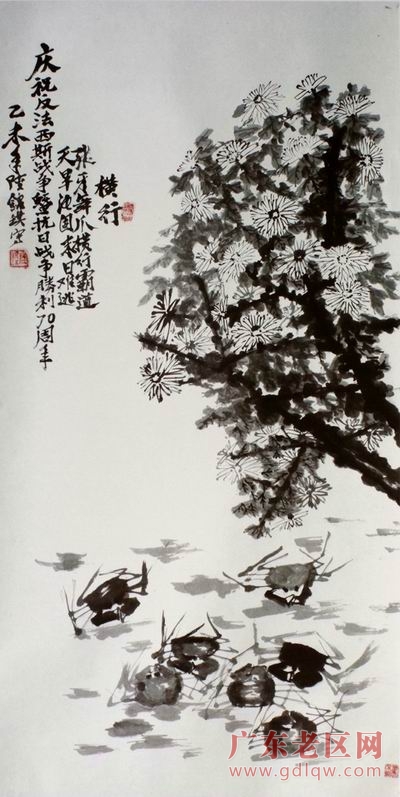 横行
张牙舞爪横行霸道
天旱池末日难逃
庆祝反法西斯战争暨抗日战争胜利70周年
乙未
广东老区网
www.gdlqw.com